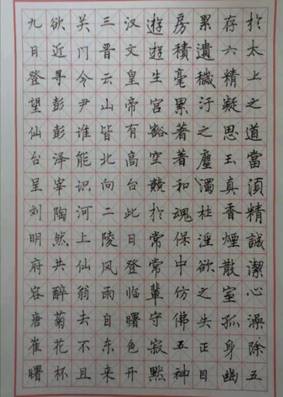 於太上之道當須精誠潔心澡除五
存六精凝思玉真香煙散室孤身幽
累遺穢汙之塵濁杜淫欲之失正目
房積毫累著著和魂保中仿佛五神
遊遊生宮豁空競於常常輩守寂默
汉文皇帝有高台此日登临曙色开
三晋云山皆北向二陵风雨自东来
关门令尹谁能识河上仙翁去不且
欲近寻彭彭泽宰陶然共醉菊花杯
九日登望仙台呈刘明府容唐崔曙